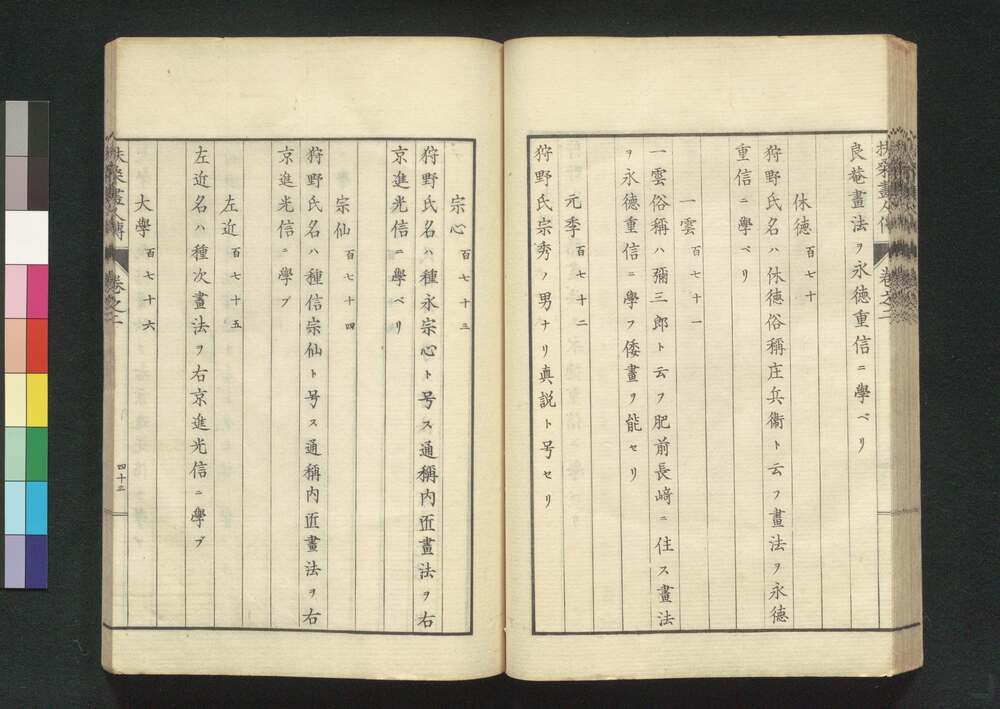 扶桑畫人傳
卷之二
良菴畫法ヲ永德重信ニ學ベリ
休德 百七十
狩野氏名ハ休德俗稱庄兵衞ト云フ畫法ヲ永德
重信ニ學ベリ
一雲 百七十一
一雲俗稱ハ彌三郎ト云フ肥前長﨑ニ住ス畫法
ヲ永德重信ニ學フ倭畫ヲ能セリ
元季 百七十二
狩野氏宗秀ノ男ナリ真説ト号セリ
宗心 百七十三
狩野氏名ハ種永宗心ト号ス通稱内匠畫法ヲ右
京進光信ニ學ベリ
宗仙 百七十四
狩野氏名ハ種信宗仙ト号ス通稱内匠畫法ヲ右
京進光信ニ學ブ
左近 百七十五
左近名ハ種次畫法ヲ右京進光信ニ學ブ
大學 百七十六
扶桑畫人傳
卷之二
四十三